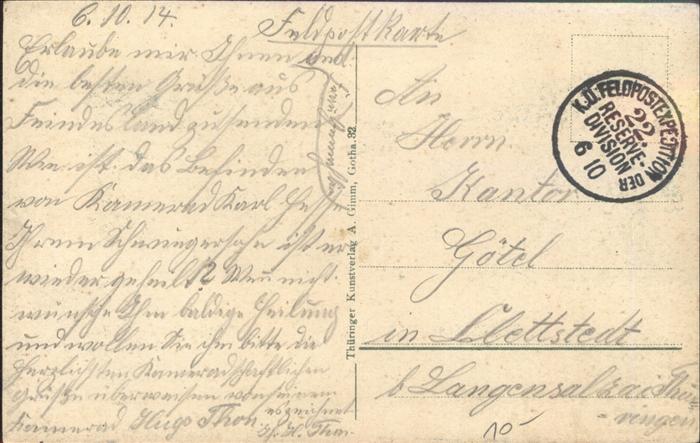 6.10.14.
Feldpostkarte
Erlaube mir Ihnen und
die besten Grüße aus
Feindesland zu senden
Wie ist das Befinden
von Kamerad Karl
Ihrem Schwiegersohn ist er
wieder geheilt? Wenn nicht
wünsche Ihm baldige Heilung
und wollen Sie ihm bitte die
herzlichsten Kameradschaftlichen
Grüße überweisen von seinem
Kamerad Hugo Thon.
es zeichnet
H. Thon.
Thüringer Kunstverlag A. Gimm, Gotha. 32
An
Herrn
Kantor
Götel
in Klettstedt
b. Langensalza i. Thü-
-ringen
K.D. FELDPOSTEXPEDITION DER
22.
RESERVE-
DIVISION
6 10
10-